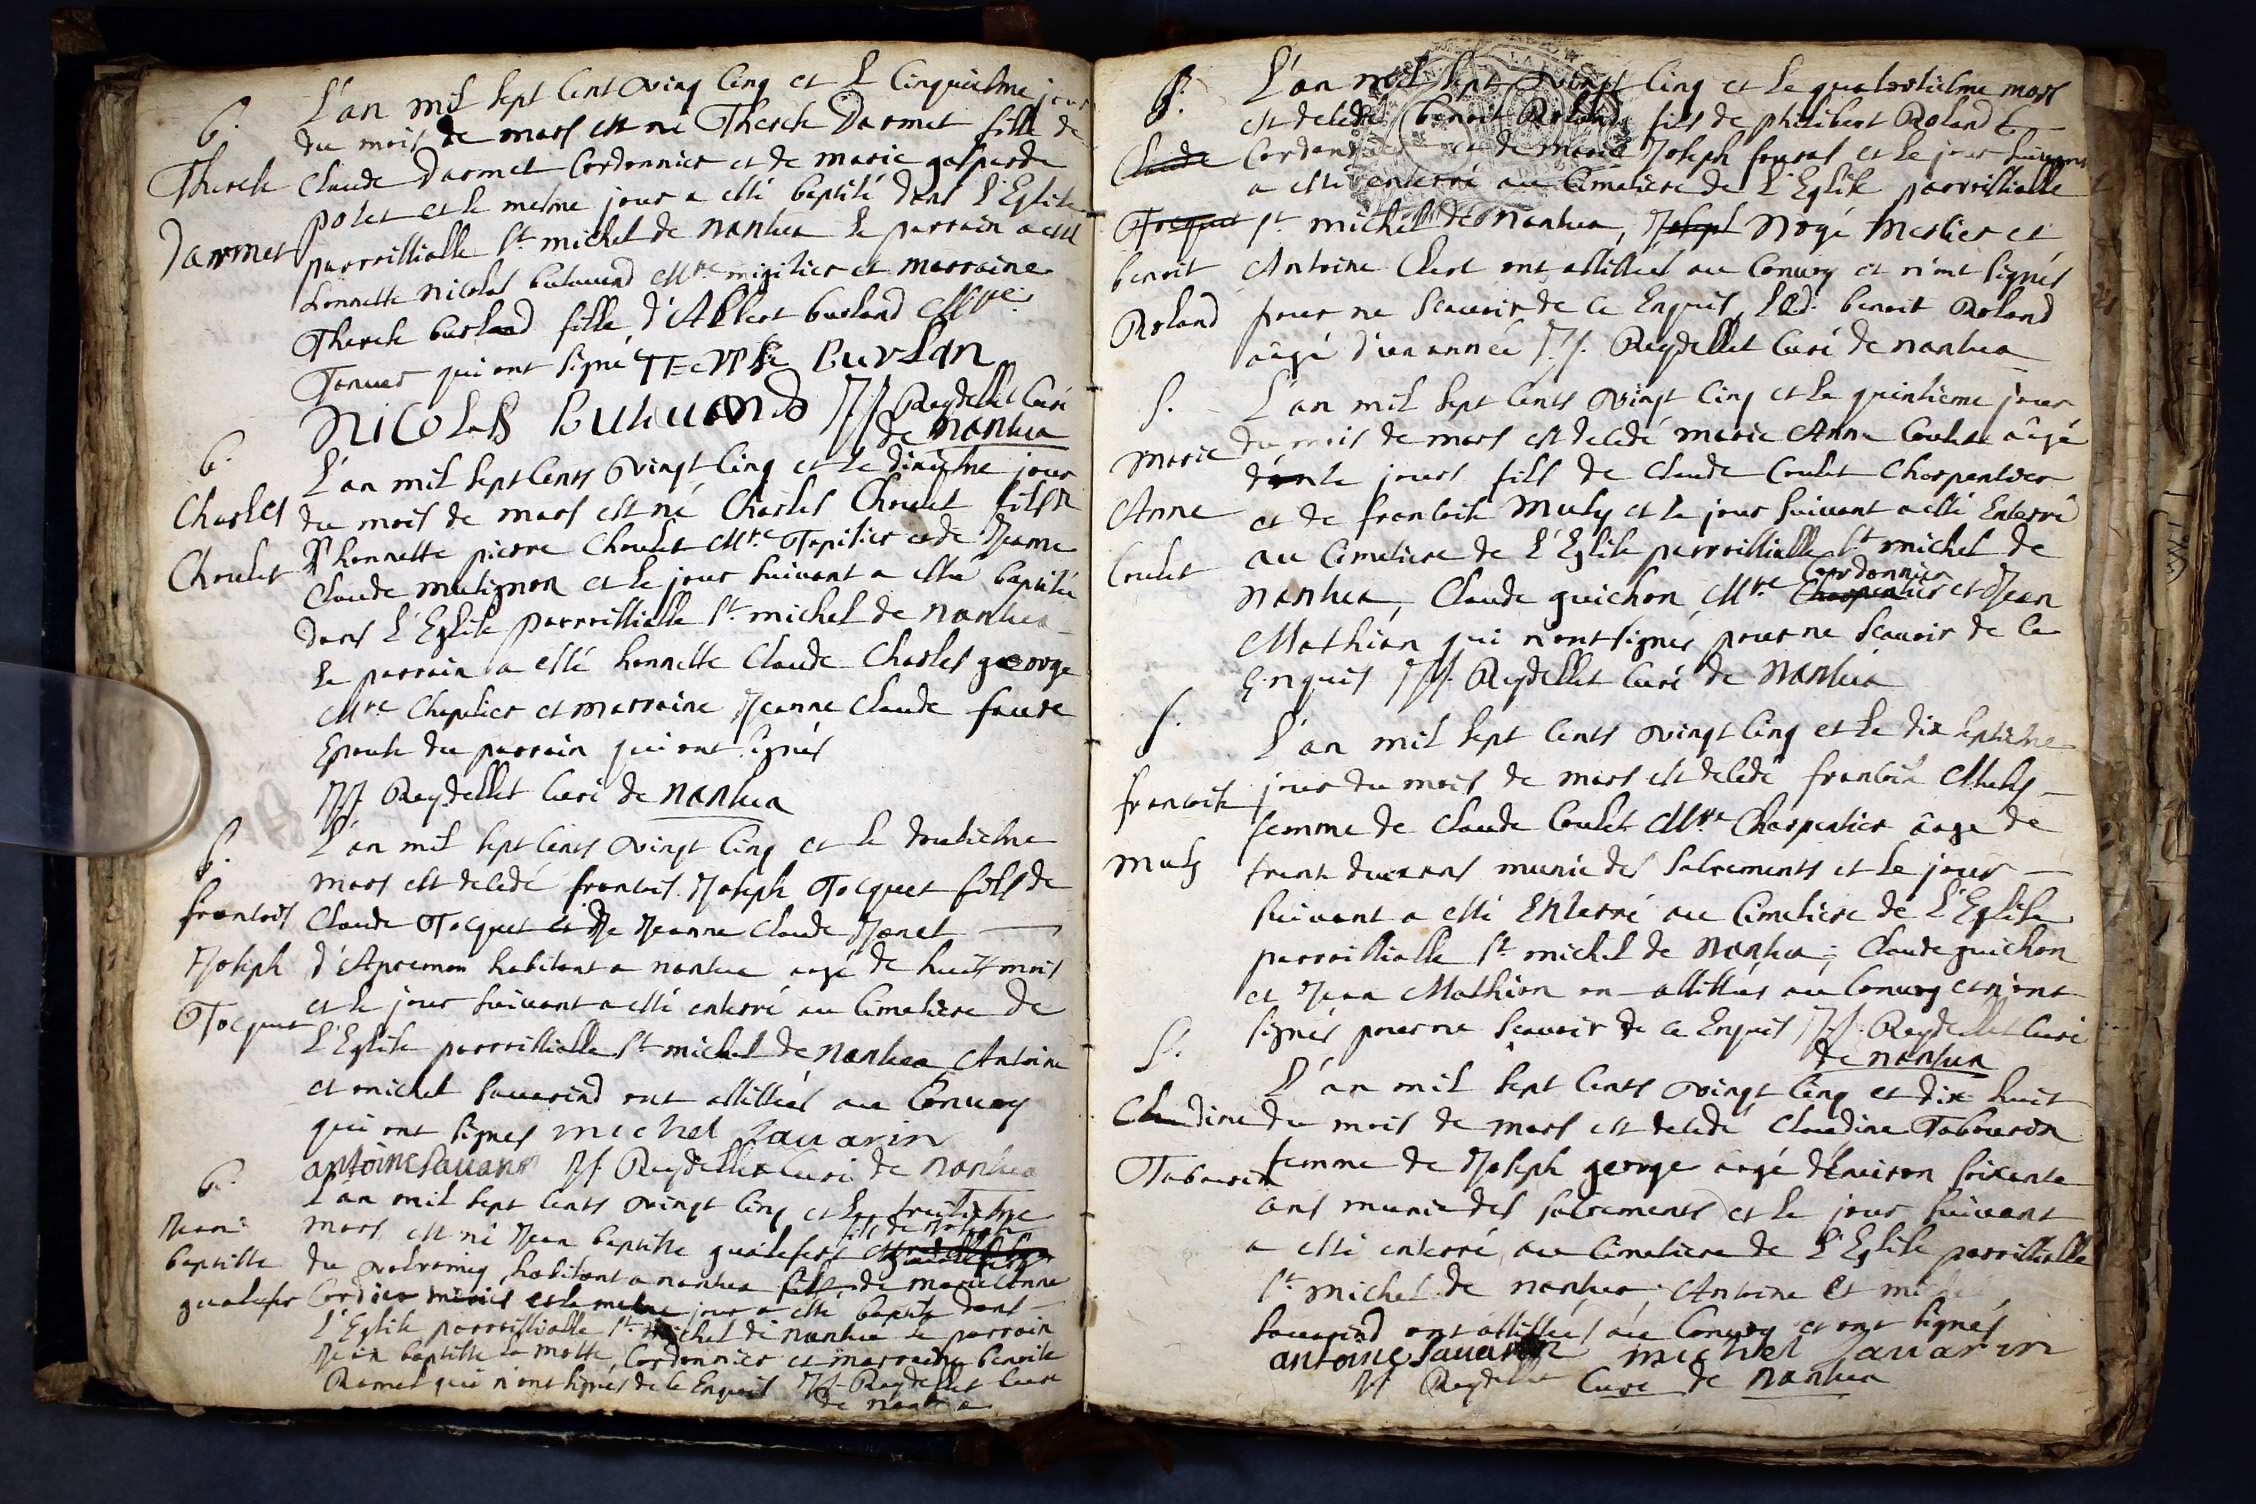 b.
Therese
Darmet
L'an mil sept cent vingt cinq et le cinquiesme jour
du mois de mars est né Therese Darmet fille de
Claude Darmet Cordonnier et de marie gasparde
polet et le mesme jour a esté baptisé dans l'Eglise
parroissialle st michel de nantua le parrain a esté
honneste nicolas butavand Mre migissier et marraine
Therese burland fille d'Albert burland Mre
Tanneur qui ont signé Terese burlan
nicolas butavand JJ Reydellet Curé
de nantua
b.
Charles
Choulet
L'an mil sept Cents vingt Cinq et le dixiesme jour
du mois de mars est né Charles Choulet fils d
honneste pierre Choulet Mre Tapisier et de Jeanne
Claude matignon et le jour suivant a esté baptisé
dans l'Eglise parroissialle st michel de nantua
le parrain a esté honneste Claude Charles george
Mre Chapelier et marraine Jeanne Claude faure
Epouse du parrain qui ont signés
JJ Reydellet Curé de nantua
S.
francois
Joseph
Tocquet
L'an mil sept Cents vingt Cinq et le douziesme
mars est decedé francois Joseph Tocquet fils de
Claude Tocquet et de Jeanne Claude Janet
d'Apremon habitant a nantua aagé de huit mois
et le jour suivant a esté enterré au Cimetiere de
L'Eglise parroissialle st michel de nantua, Antoine
et michel Savarind ont assistés au Convoy
qui ont signes michel Savarin
antoine Savarin JJ Reydellet Curé de nantua
b.
Jean
baptiste
gualifer
L'an mil sept Cents vingt Cinq et le treiziesme
mars est né Jean baptiste gualifert fils de Joseph
du valromey habitant a nantua fils de marie Anne
Cordier mariés et le mesme jour a esté baptisé dans
L'Eglise parroissialle st michel de nantua le parrain
Jean baptiste la motte Cordonnier et marraine benoite
Ramel qui n'ont signés de ce Enquis JJ Reydellet Curé
de nantua
S.
Claude
Tocquet
benoit
Roland
L'an mil sept vingt Cinq et le quatorziesme mars
est decedé benoit Roland fils de philibert Roland
Cordonnier et de marie Joseph fourat et le jour suivant
a esté enterré au Cimetiere de L'Eglise parroissialle
st michel de nantua, Joseph Nogé Mercier et
Antoine Clert ont assistés au Convoy et n'ont signés
pour ne scavoir de ce Enquis, led. benoit Roland
aagé d'un année JJ. Reydellet Curé de nantua
S.
marie
Anne
Coulet
L'an mil sept Cents vingt Cinq et le quinzieme jour
du mois de mars est decedé marie Anne Coulet aâgé
jours fils de Claude Coulet Charpentier
et de francoise Muly et le jour suivant a esté Enterré
au Cimetiere de L'Eglise parroissialle st michel de
Cordonnier
nantua, Claude guichon Mre Charpentier et Jean
Mathian qui n'ont signés pour ne scavoir de ce
Enquis JJ. Reydellet Curé de nantua
S.
francoise
muly
L'an mil sept Cents vingt Cinq et le dix septiesme
jour du mois de mars est decedé francoise Muly
femme de Claude Coulet Mre Charpentier âagé de
trent deux ans munie des sacrements et le jour
suivant a esté Enterré au Cimetiere de L'Eglise
parroissialle st michel de nantua, Claude guichon
et Jean Mathian on assistés au Convoy et n'ont
signés pour ne scavoir de ce Enquis JJ. Reydellet Curé
de nantua
S.
Claudine
Tabouron
L'an mil sept Cents vingt Cinq et dix huit
du mois de mars est decedé Claudine Tabouron
femme de Joseph george aagé d'Environ soixante
ans munie des sacrements et le jour suivant
a esté enterré au Cimetiere de L'Eglise parroissialle
st michel de nantua, Antoine et michel
Savarind ont assistés au Convoy et ont signés
antoine Savarin michel Savarin
JJ Reydellet Curé de nantua